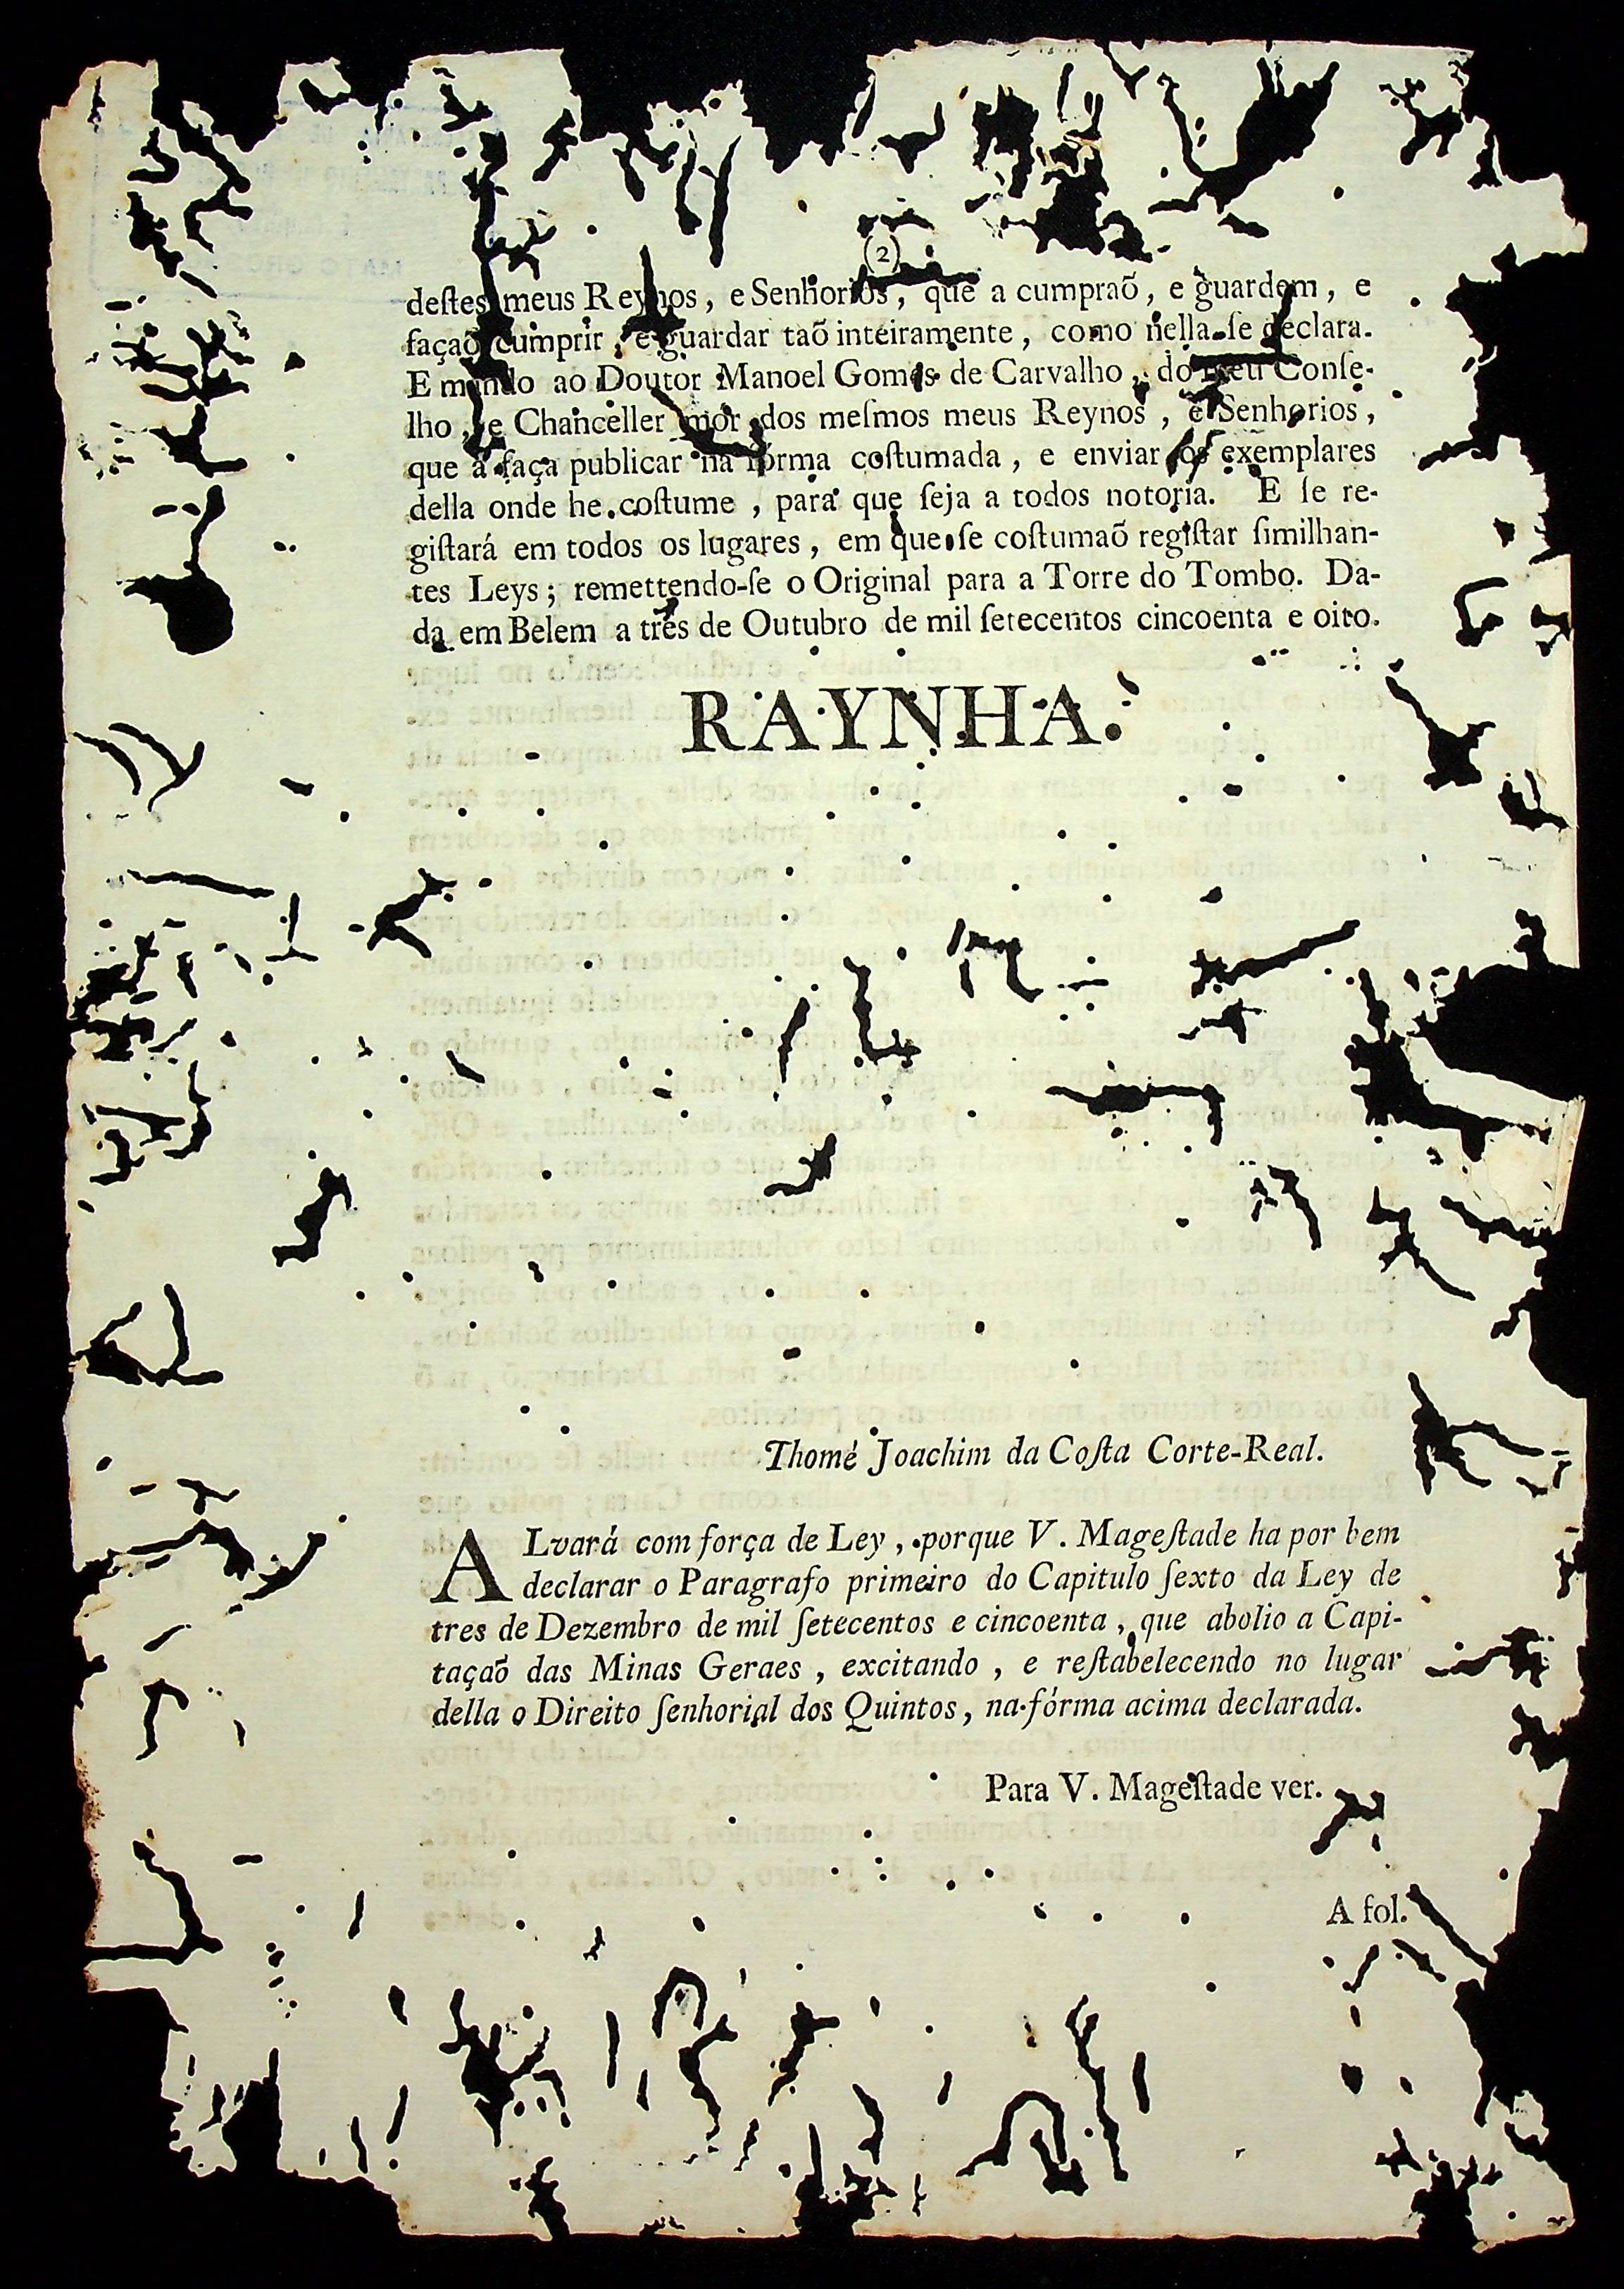 (2)
deſtes meus Reynos, e Senhorios, que a cumpraõ, e guardem, e
façaõ cumprir, e guardar taõ inteiramente, como nella ſe declara.
E mando ao Doutor Manoel Gomes de Carvalho, do meu Conſe-
lho, e Chanceller mór dos meſmos meus Reynos, e Senhorios,
que a faça publicar na fórma coſtumada, e enviar os exemplares
della onde he coſtume, para que ſeja a todos notoria. E ſe re-
giſtará em todos os lugares, em que ſe coſtumaõ regiſtar ſimilhan-
tes Leys; remettendo-ſe o Original para a Torre do Tombo. Da-
da em Belem a tres de Outubro de mil ſetecentos cincoenta e oito.
RAYNHA.
Thomé Joachim da Coſta Corte-Real.
ALvará com força de Ley, porque V. Mageſtade ha por bem
declarar o Paragrafo primeiro do Capitulo ſexto da Ley de
tres de Dezembro de mil ſetecentos e cincoenta, que abolio a Capi-
taçaõ das Minas Geraes, excitando, e reſtabelecendo no lugar
della o Direito ſenhorial dos Quintos, na fórma acima declarada.
Para V. Mageſtade ver.
A fol.